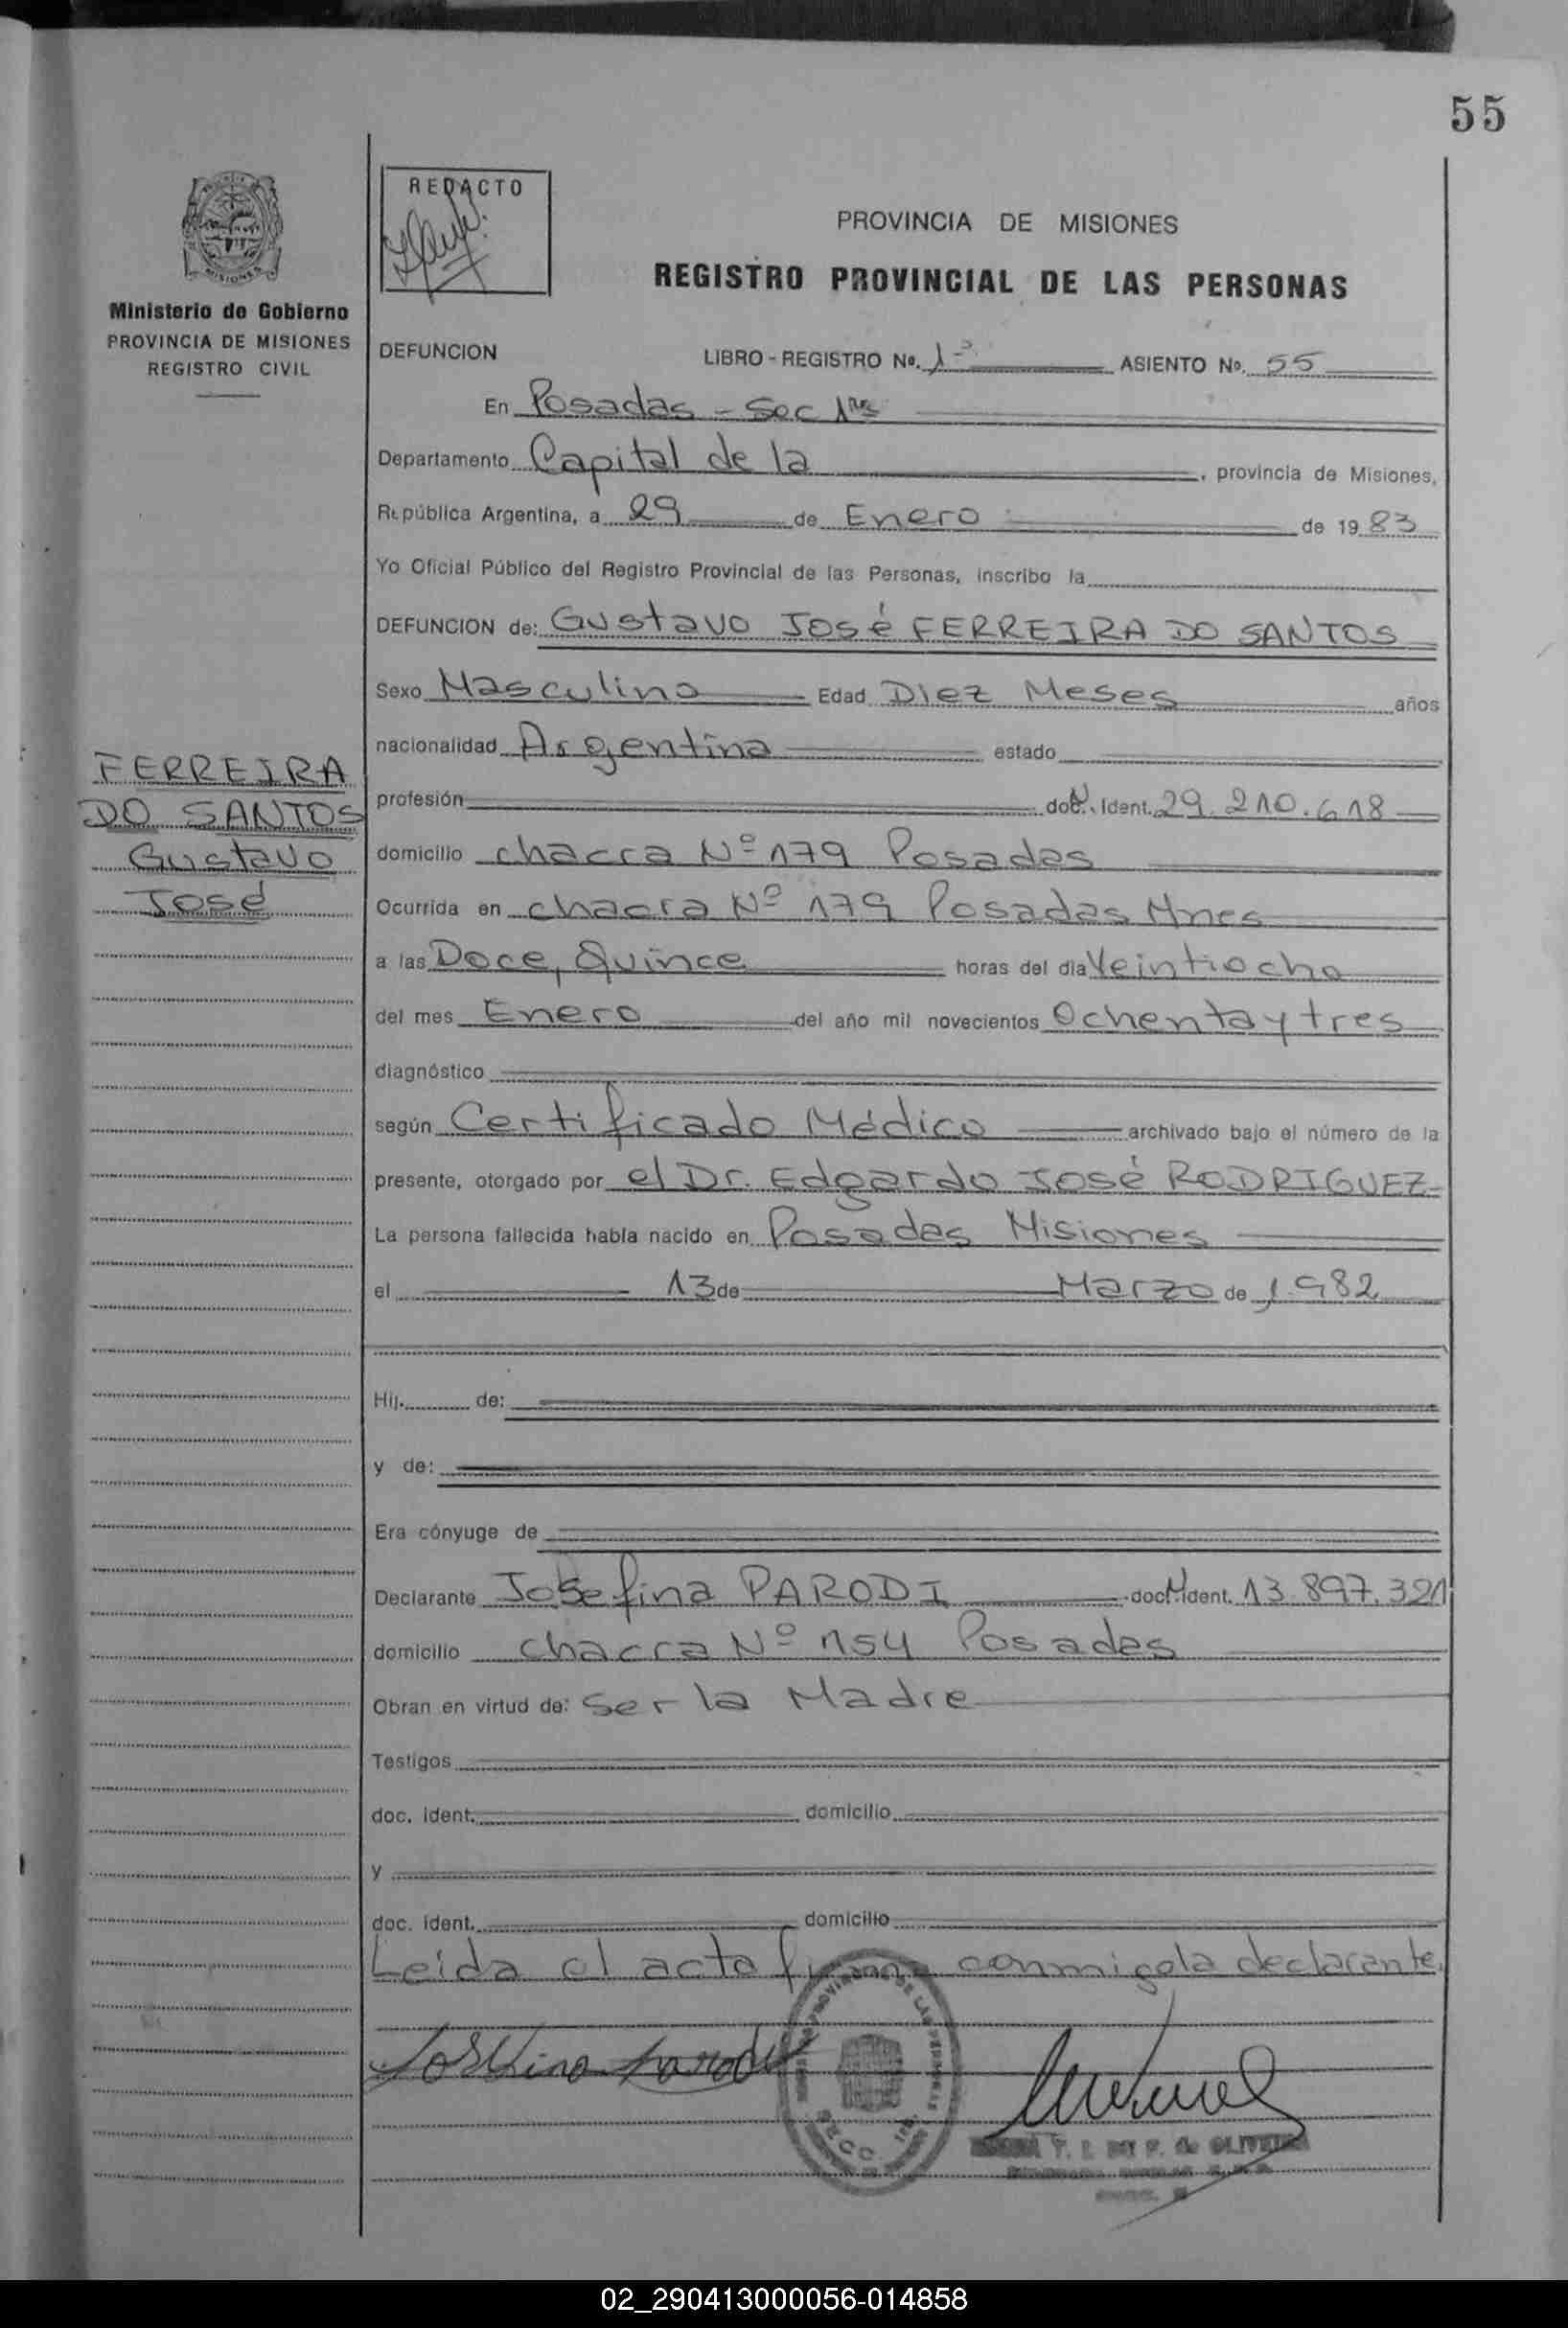 55
REDACTO
PROVINCIA DE MISIONES
REGISTRO PROVINCIAL DE LAS PERSONAS
MISIONES
Ministerio de Gobierno
PROVINCIA DE MISIONES
REGISTRO CIVIL
DEFUNCION LIBRO - REGISTRO Nº. 1 ASIENTO Nº. 55
En Posadas - Sec 1ra
Departamento Capital de la , provincia de Misiones,
República Argentina, a 29 de Enero de 1983
Yo Oficial Público del Registro Provincial de las Personas, inscribo la
DEFUNCION de: Gustavo José FERREIRA DO SANTOS
Sexo Masculino Edad Diez Meses años
nacionalidad Argentina estado
FERREIRA
DO SANTOS
Gustavo
José
profesión doc. ident. 29.210.618
domicilio chacra Nº 179 Posadas
Ocurrida en chacra Nº 179 Posadas Mnes
a las Doce, Quince horas del día Veintiocho
del mes Enero del año mil novecientos Ochenta y tres
diagnóstico
según Certificado Médico archivado bajo el número de la
presente, otorgado por el Dr. Edgardo José RODRIGUEZ
La persona fallecida había nacido en Posadas Misiones
el 13 de Marzo de 1.982
Hij. de:
y de:
Era cónyuge de
Declarante Josefina PARODI doc. ident. 13.897.321
domicilio chacra Nº 154 Posadas
Obran en virtud de: Ser la Madre
Testigos
doc. ident. domicilio
y
doc. ident. domicilio
Leida el acta firma conmigo la declarante.
Josefina Parodi
de OLIVEIRA
02_290413000056-014858